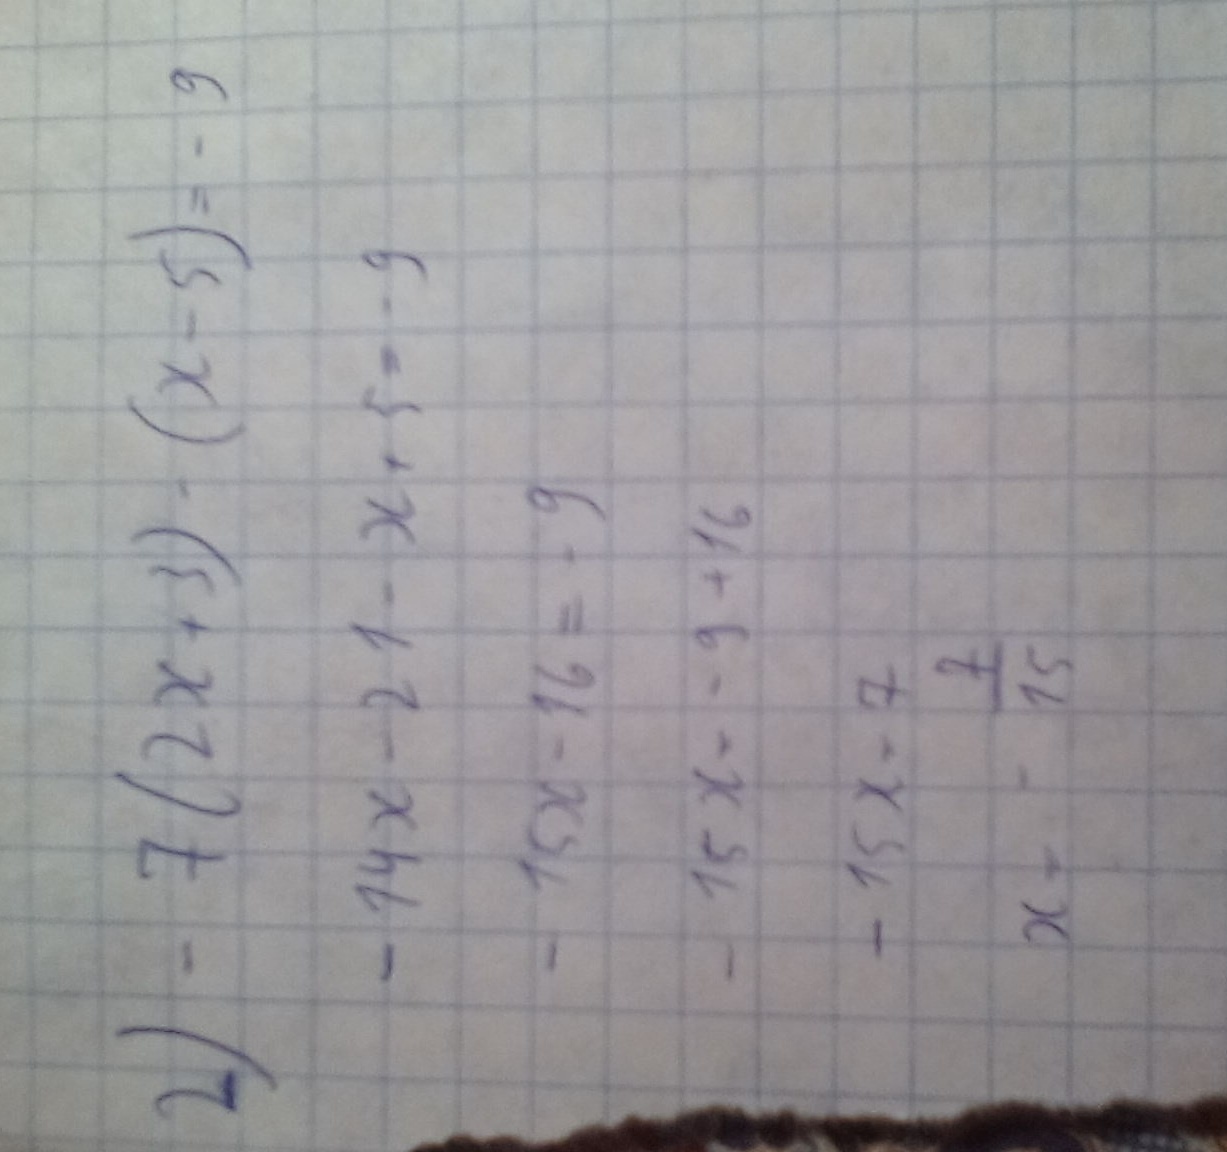 2) - 7(2x+3) - (x-5) = - 9
-14x - 21 - x + 5 = - 9
- 15x - 16 = - 9
- 15x = - 9 + 16
- 15x = 7
x = - 7/15